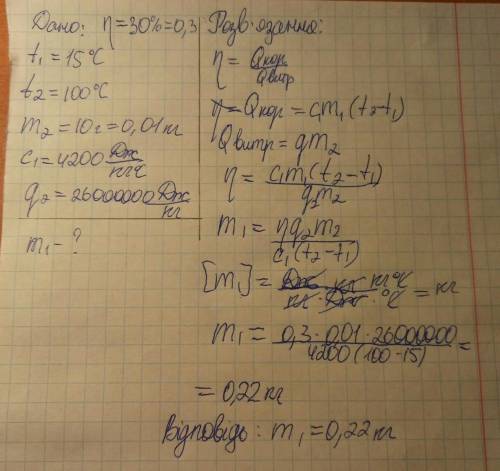 Дано: η=30%=0,3
t₁=15°C
t₂=100°C
m₂=10г=0,01кг
c₁=4200 Дж/кг°C
q₂=26000000 Дж/кг
m₁-?
Розв'язання:
η = Qкор/Qвитр
Qкор=c₁m₁(t₂-t₁)
Qвитр=qm₂
η = c₁m₁(t₂-t₁)/q₂m₂
m₁ = ηq₂m₂/c₁(t₂-t₁)
[m₁] = Дж · кг · кг°C/кг · Дж · °C = кг
m₁ = 0,3·0,01·26000000/4200(100-15) =
= 0,22кг
Відповідь: m₁=0,22кг